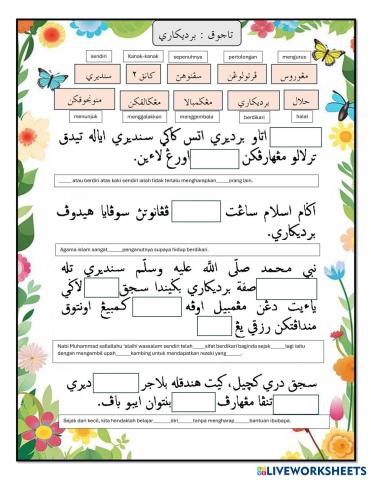 تاجوق : برديکاري
sendiri
Kanak-kanak
sepenuhnya
pertolongan
mengurus
سنديري
کانق ٢
سڤنوهن
ڤرتولوڠن
مڠوروس
منونجوقکن
مڠݢالقکن
مڠݢمبالا
برديکاري
حلال
menunjuk
menggalakkan
menggembala
berdikari
halal
اتاو برديري اتس کاکي سنديري اياله تيدق
ترلالو مڠهارڤکن اورڠ لاءين.
_____atau berdiri atas kaki sendiri ialah tidak terlalu mengharapkan_____orang lain.
اݢام اسلام ساڠت ڤڠانوتڽ سوڤايا هيدوڤ
برديکاري.
Agama islam sangat_____penganutnya supaya hidup berdikari.
نبي محمد صلّى اللَّه عليه وسلّم سنديري تله
صفة برديکاري بݢيندا سجق لاݢي
ياءيت دڠن مڠمبيل اوڤه کمبيڠ اونتوق
منداڤتکن رزقي يڠ
Nabi Muhammad sallallahu 'alaihi wassalam sendiri telah_____sifat berdikari baginda sejak_____lagi iaitu
dengan mengambil upah_____kambing untuk mendapatkan rezeki yang_____.
سجق دري کچيل، کيت هندقله بلاجر ديري
تنڤا مڠهارڤ بنتوان ايبو باڤ.
Sejak dari kecil, kita hendaklah belajar_____diri_____tanpa mengharap_____bantuan ibubapa.
LIVEWORKSHEETS